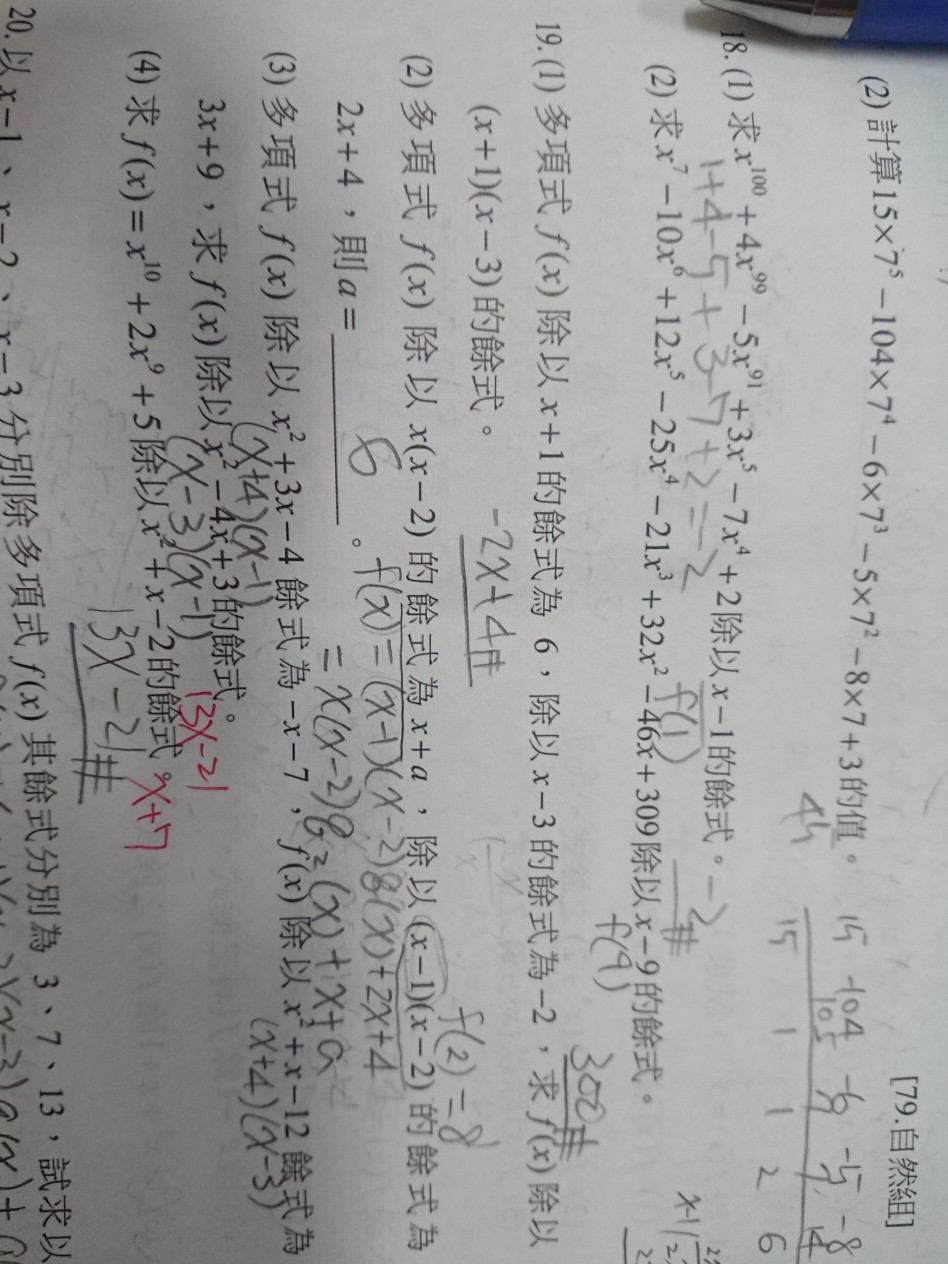 (2) 計算15×7⁵－104×7⁴－6×7³－5×7²－8×7＋3的值。 [79.自然組]
44
15 -104 -6 -5 -8
105 7 7 14
15 1 1 2 6
18. (1) 求 x¹⁰⁰＋4x⁹⁹－5x⁹¹＋3x⁵－7x⁴＋2除以x－1的餘式。 -2#
1+4-5+3-7+2=-2 f(1)
(2) 求x⁷－10x⁶＋12x⁵－25x⁴－21x³＋32x²－46x＋309除以x－9的餘式。
f(9) 300#
19. (1) 多項式 f(x) 除以 x＋1的餘式為 6，除以 x－3的餘式為－2，求 f(x) 除以
(x＋1)(x－3) 的餘式。 -2x+4#
(2) 多項式 f(x) 除以 x(x－2) 的餘式為 x＋a，除以 (x－1)(x－2) 的餘式為
f(2)=8
2x＋4，則a＝ 6 。 f(x)=(x-1)(x-2)Q(x)+2x+4
=x(x-2)Q₂(x)+x+a
(3) 多項式 f(x) 除以 x²＋3x－4 餘式為－x－7，f(x) 除以 x²＋x－12餘式為
(x+4)(x-1) (x+4)(x-3)
3x＋9，求 f(x) 除以x²－4x＋3的餘式。 13x-21
(x-3)(x-1)
(4) 求 f(x)＝x¹⁰＋2x⁹＋5除以x²＋x－2的餘式。 x+7
13x-21#
20. 以 x－1、x－2、x－3 分別除多項式 f(x) 其餘式分別為 3、7、13，試求以